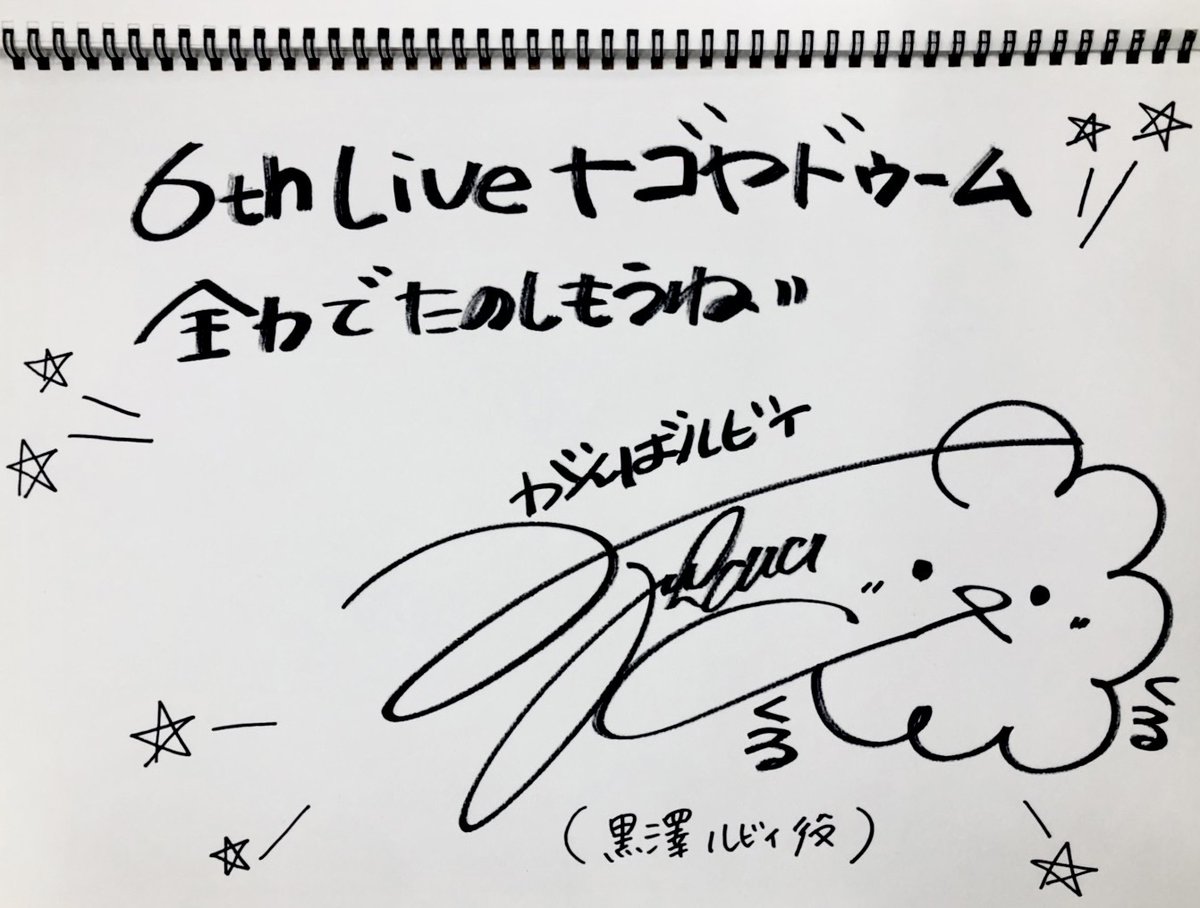 6th Live ナゴヤドゥーム
全力でたのしもうね〃
がんばルビィ
くる
くる
(黒澤ルビィ役)